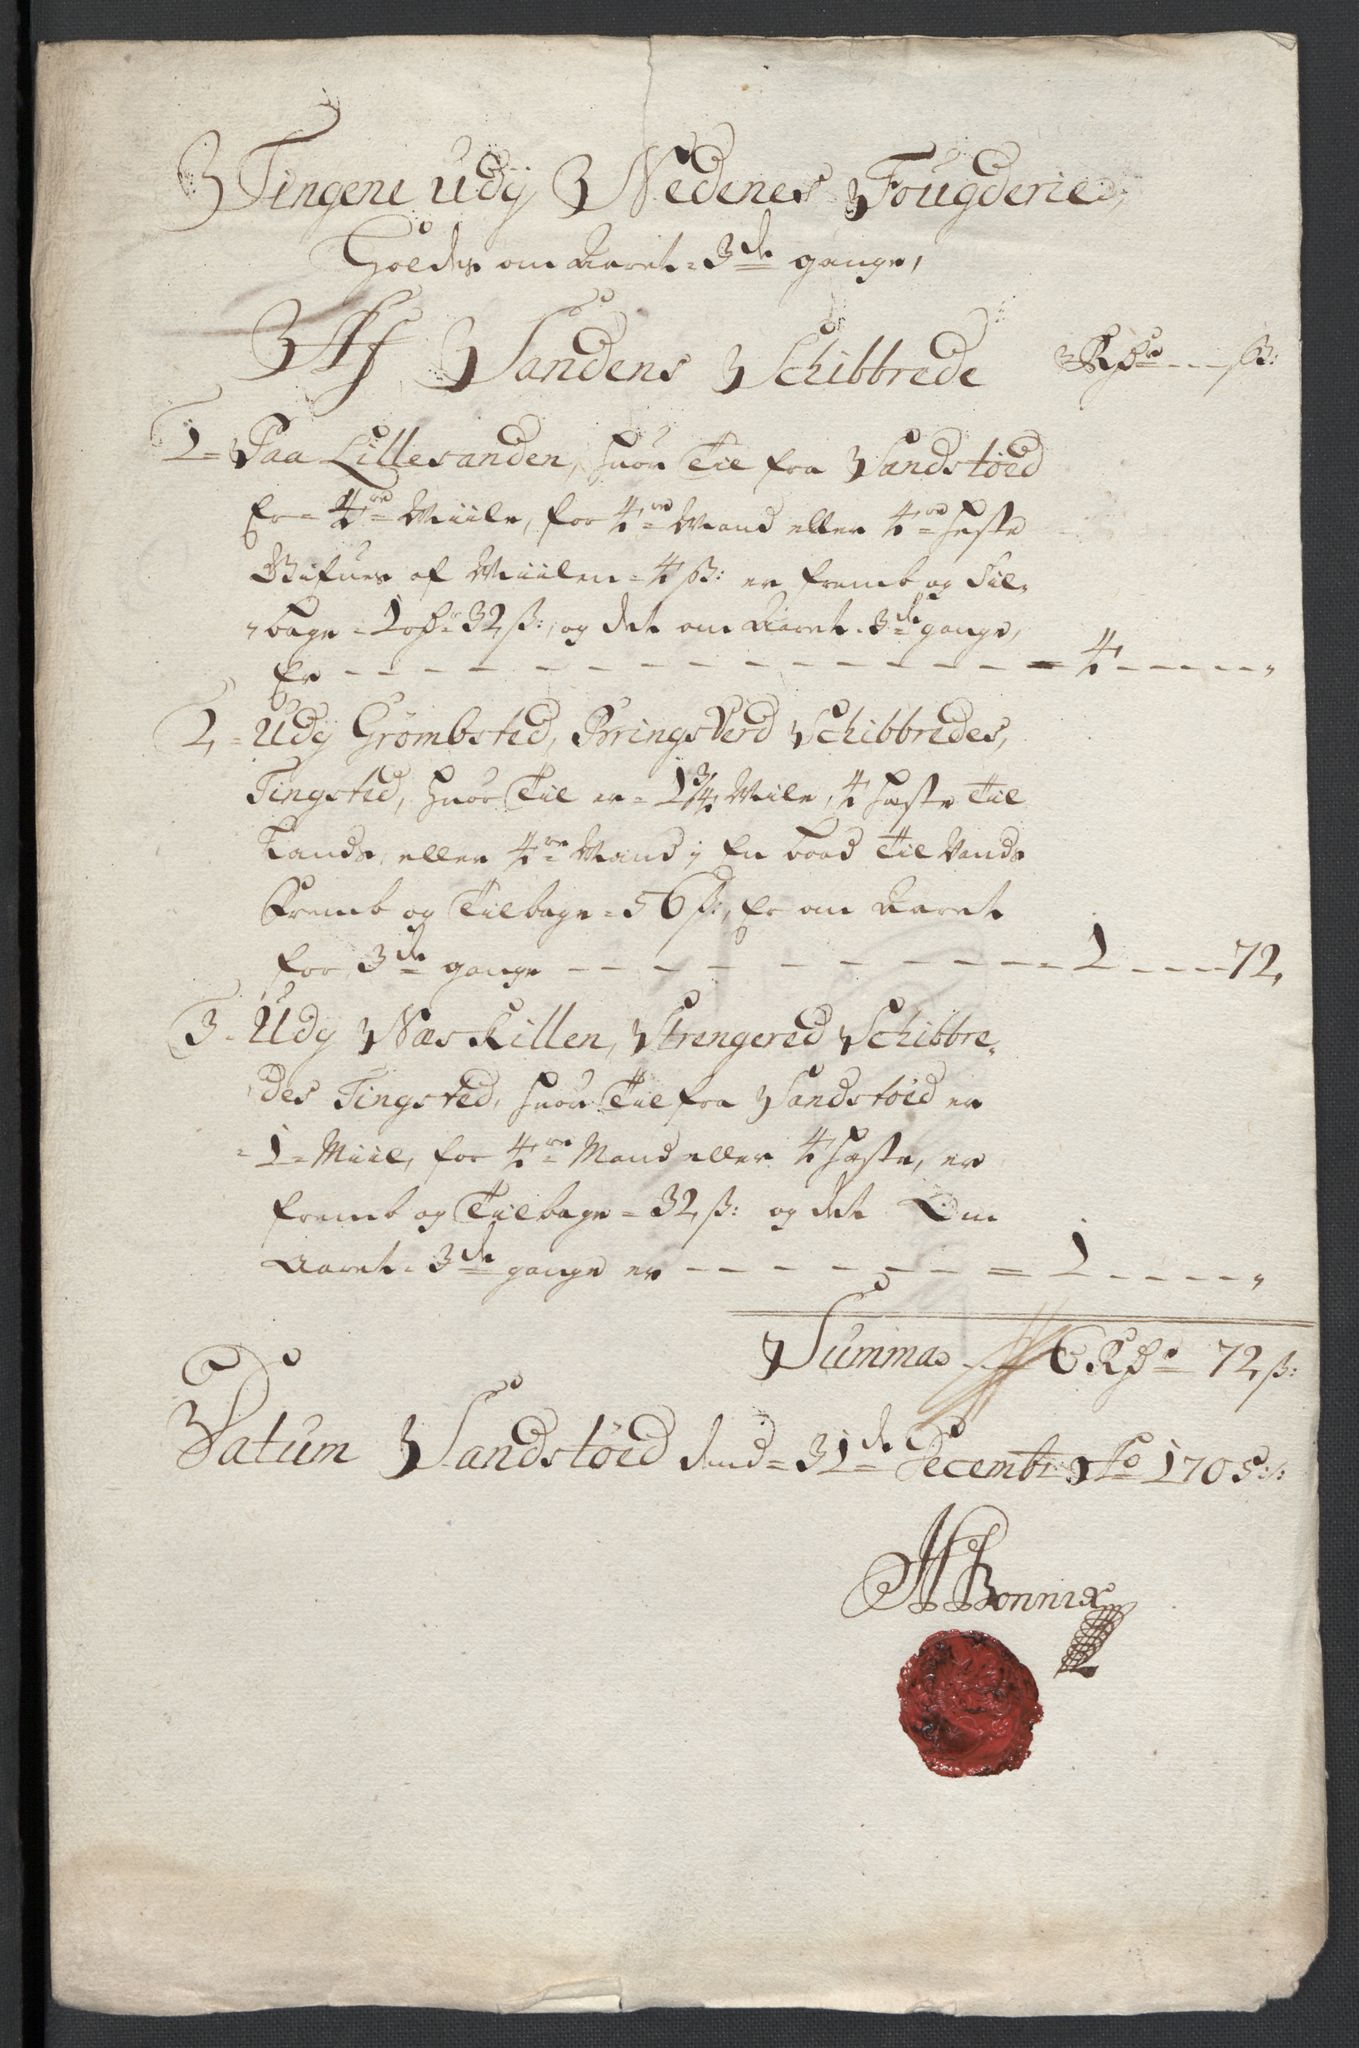 Tingene Udy Nedenes Fougderie,
Holdes om Aaret 3de gange,
Af Sandens Schibbrede Rdr ß:
1 Paa Lillesanden, huor Til fra Sandstöed
Er 4re Miile, for 4re Mand eller 4re heste
Gifues af Miilen 4 ß: er fremb og til-
bage 1 rd 32 ß:, og det om Aaret 3de gange,
Er 4
2 Udy Grömbsted, Bringsverd Schibbredes,
Tingsted, huor Til er 1¾ Mile, 4 heste Til
Lands, eller 4re Mand i En baad Til Vands
Fremb og Tilbage 56 ß:, Er om Aaret
for 3de gange 1 72,
3 Udy Næs Killen, Strengered Schibbre-
des Tingsted, huor Til fra Sandstöed er
1 Miil, for 4re Mand eller 4 heste, er
fremb og Tilbage 32 ß: og det Om
Aaret 3de gange er 1
Summa 6 Rdr 72 ß:
Datum Sandstöed dend 31de Decembr: Ao 1705:/:
H Bonnix